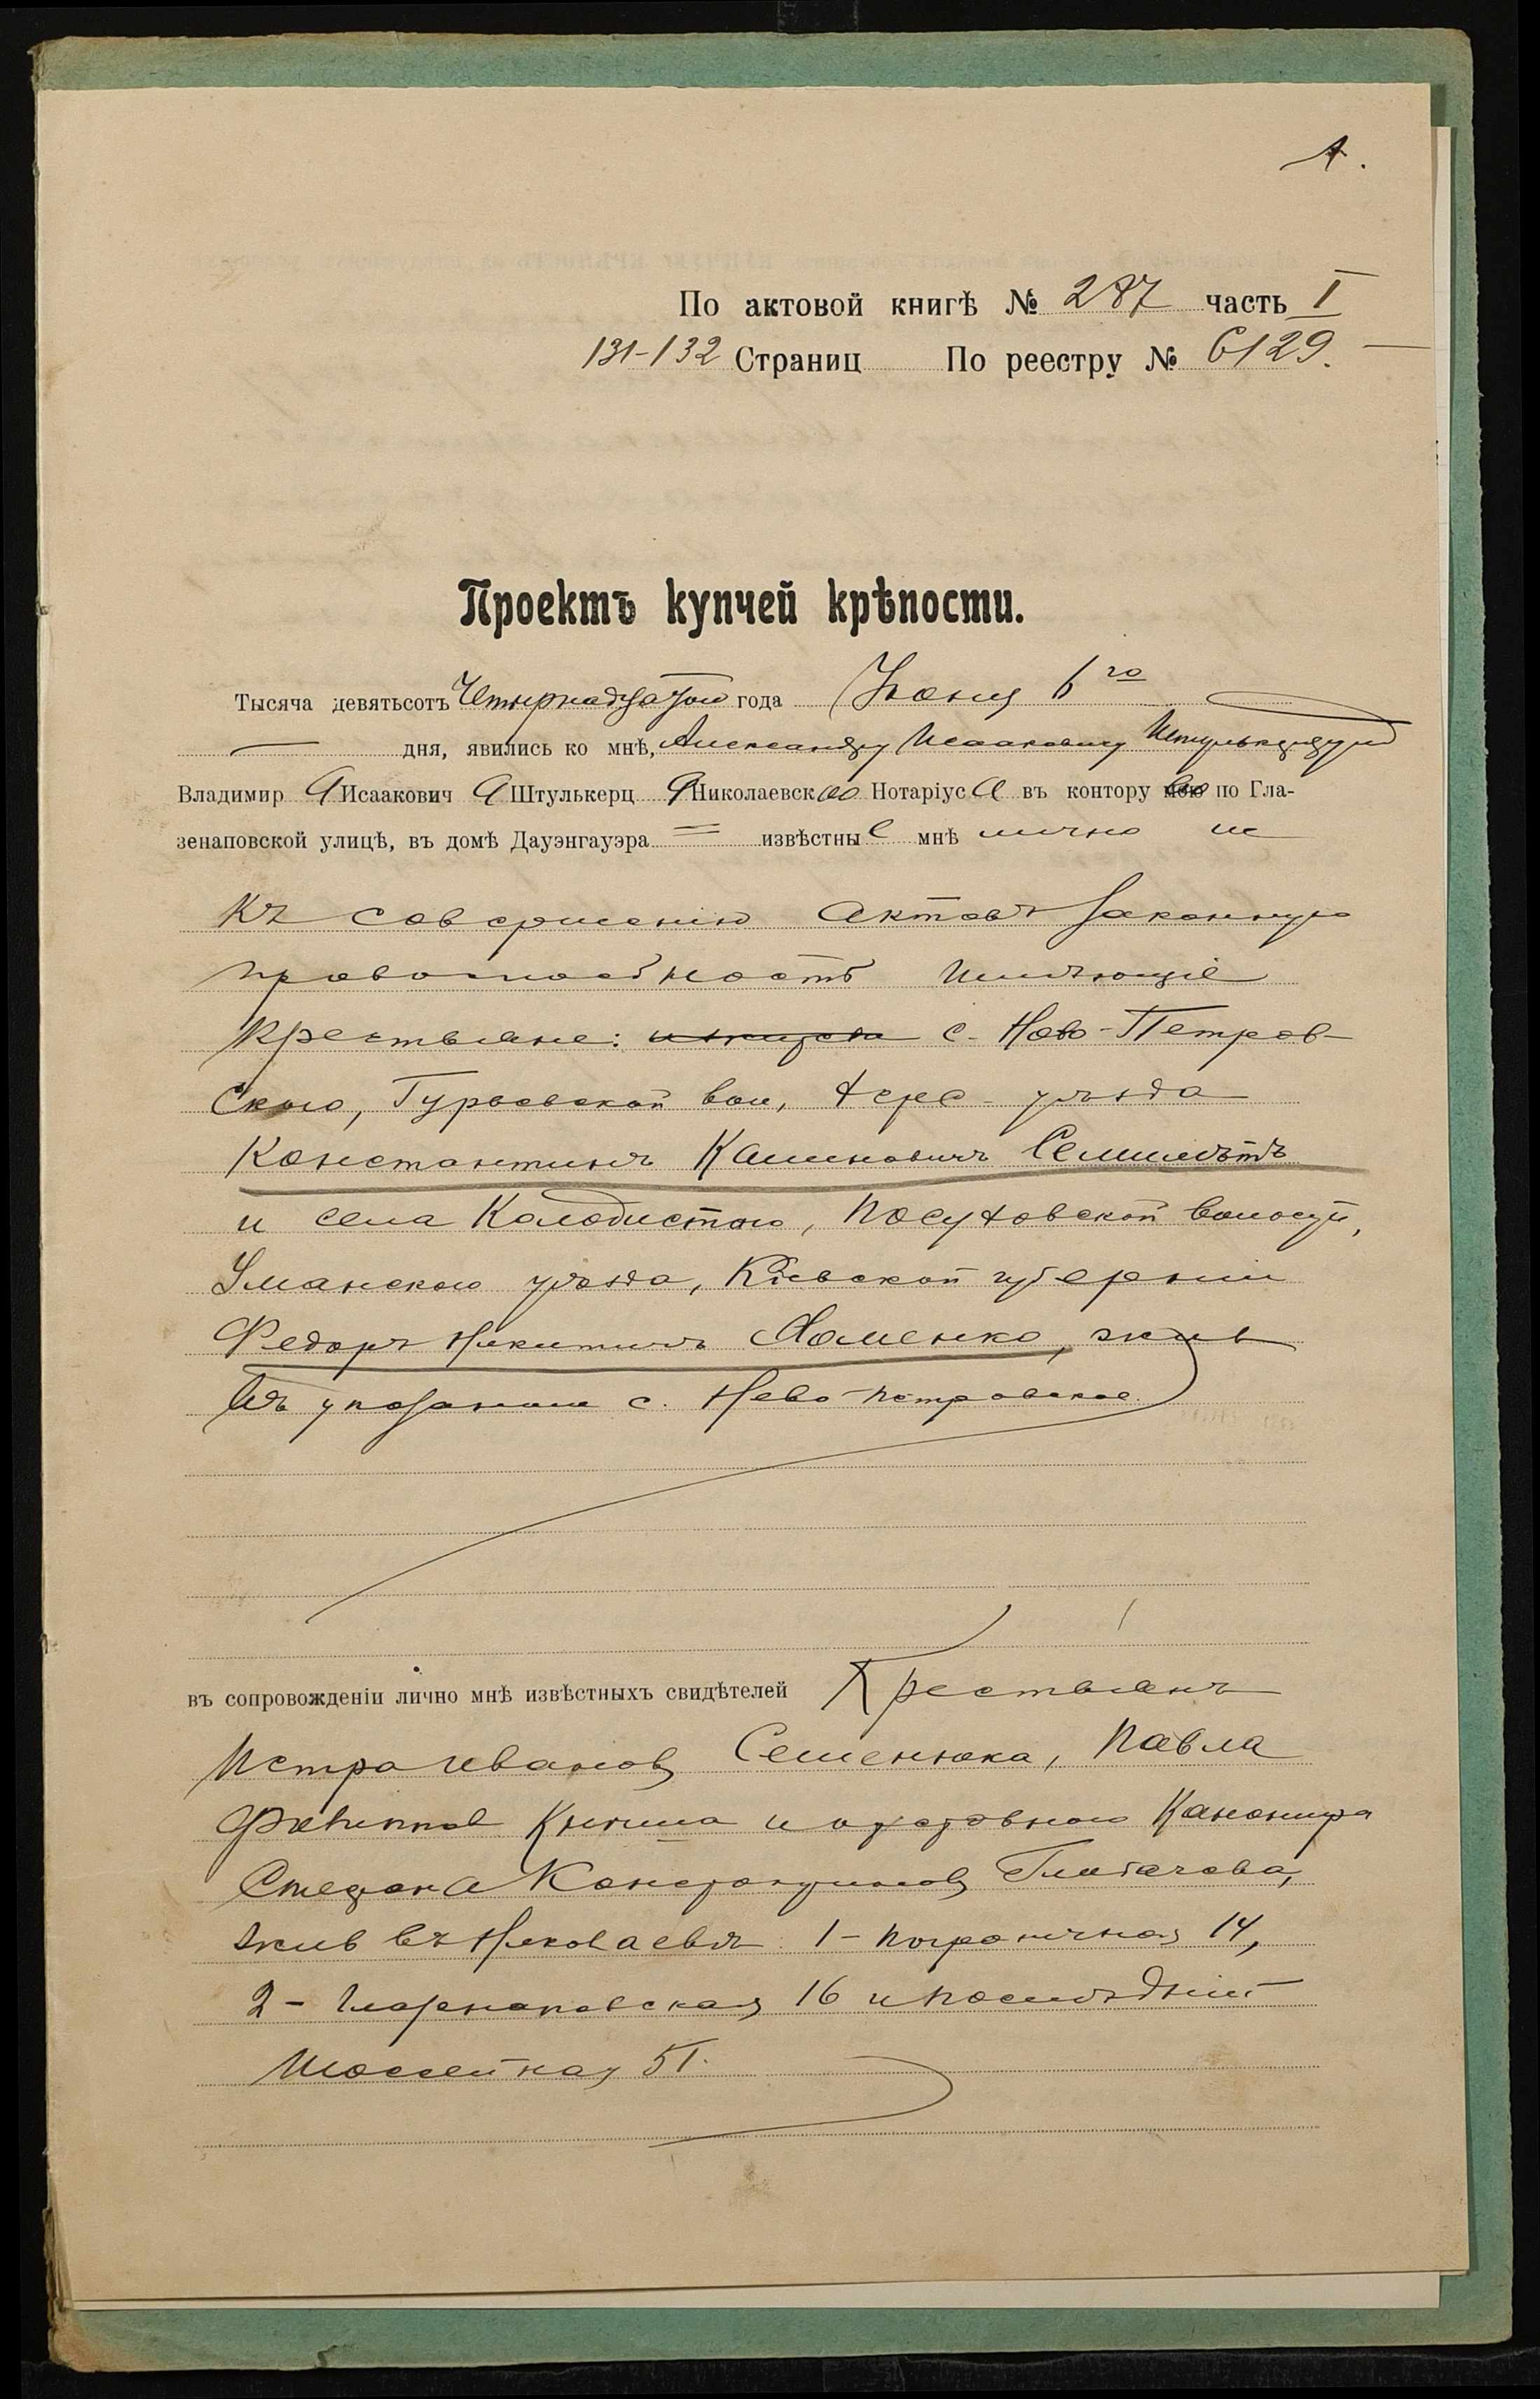 1.
По актовой книгѣ № 287 часть I
131-132 Страниц По реестру № 6129.
Проектъ купчей крѣпости.
Тысяча девятьсотъ Четырнадцатаго года Іюня 6го
дня, явились ко мнѣ, Александру Исааковичу Штулькерцу
Владимир Исаакович Штулькерц Николаевск Нотаріус а въ контору по Гла-
зенаповской улицѣ, въ домѣ Дауэнгауэра = извѣстны е мнѣ лично и
къ совершенію актовъ законную
правоспособность имѣющіе
крестьяне: с. Ново-Петров-
скаго, Гурьевской вол, Херс. уѣзда
Константинъ Семилѣтъ
и села Колодистаго, волости,
Уманскаго уѣзда, Кіевской губерніи
Федоръ Никитинъ Хоменко, жив
въ указаном с. Ново-Петровское.
въ сопровожденіи лично мнѣ извѣстныхъ свидѣтелей Крестьянъ
Петра Иванов Семенюка, Павла
Филиппов и отставного Канонира
Степана Константинов
жив въ Николаевѣ 1- Пограничная 14,
2- Глазенаповская 16 и послѣдній
Шоссейная 51.